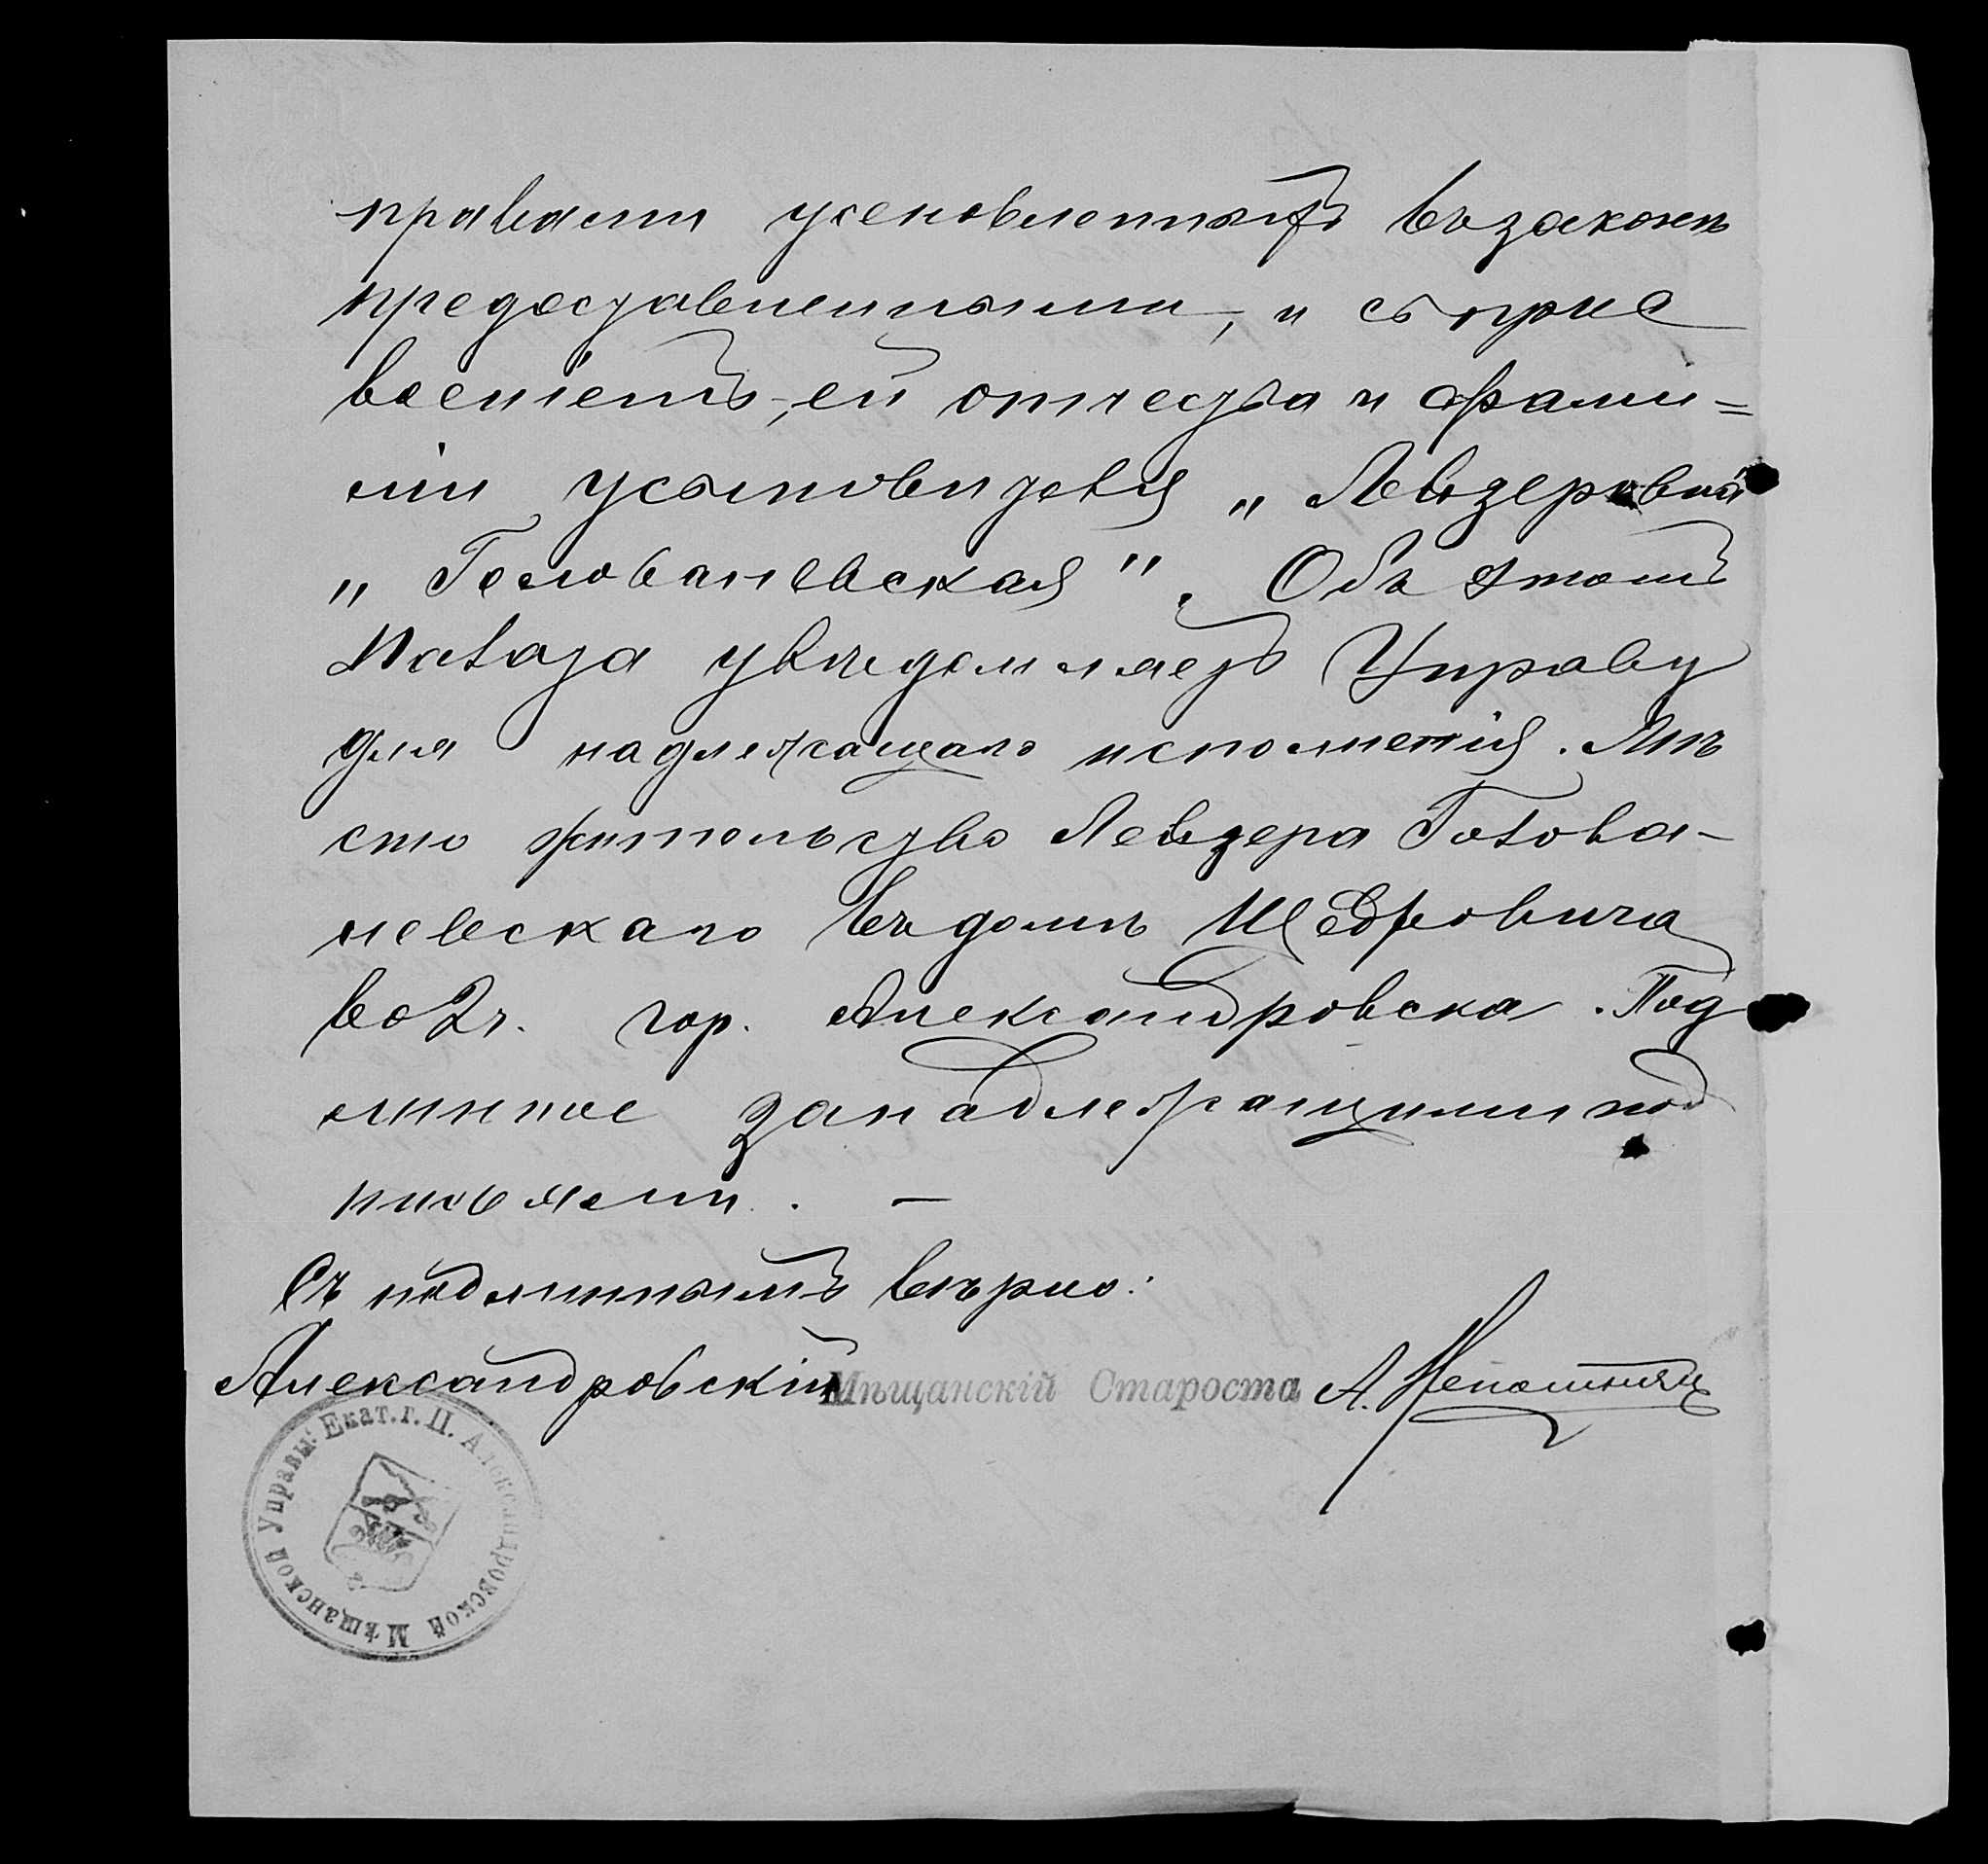 правами усыновленныхъ въ законѣ
предоставленными, и съ прис
военіемъ, ей отчества и фами=
ліи усыновителя „Лейзеровна
„Голованевская". Объ этомъ
Палата увѣдомляетъ Управу
для надлежащаго исполненія. Мѣ
сто жительство Лейзера Голова-
невскаго въ домѣ Щедровича
во 2 ч. гор. Александровска. Под
линное за надлежащими под
писями. —
Съ подлиннымъ вѣрно:
Александровскій Мѣщанскій Староста А. Непомнящ
Екат. г. П. Александровской Мѣщанской Управы: